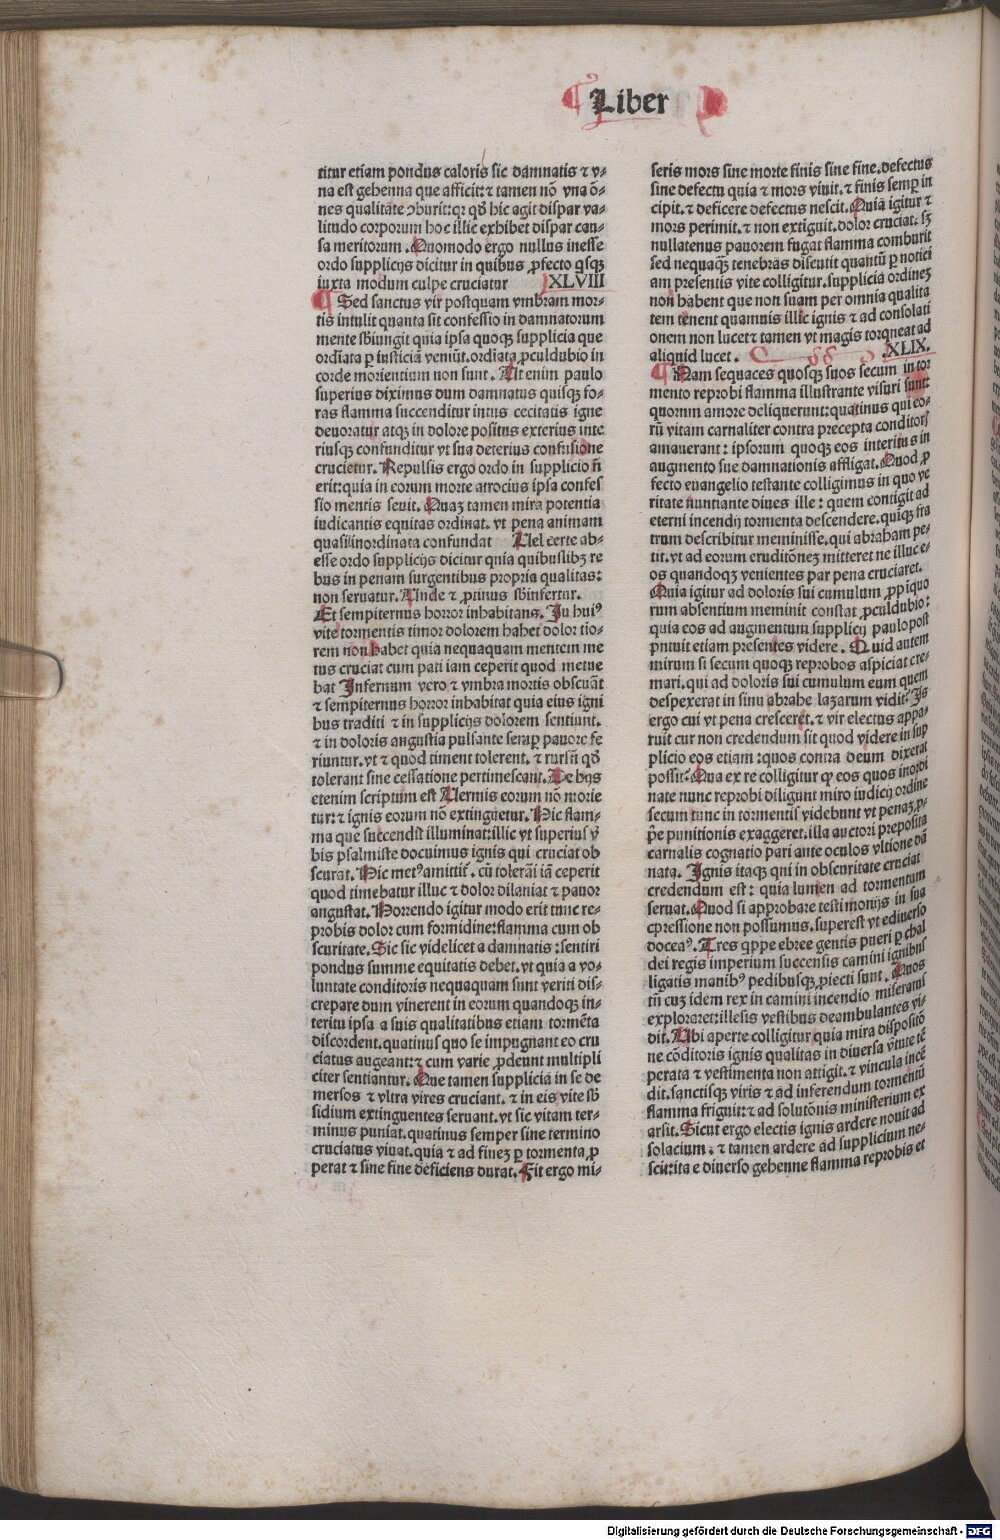 Liber
titur etiam pondus caloris sic damnatis ⁊ v-
na est gehenna que afficit: ⁊ tamen nō vna ō-
nes qualitate ↄburit: qꝛ qđ hic agit dispar va-
litudo corporum hoc illic exhibet dispar cau-
sa meritorum. Quomodo ergo nullus inesse
ordo supplicijs dicitur in quibus ꝓfecto qsqꝫ
iuxta modum culpe cruciatur XLVIII
Sed sanctus vir postquam vmbram mor-
tis intulit quanta sit confessio in damnatorum
mente sbiungit quia ipsa quoqꝫ supplicia que
ordiata ꝑ iusticiā veniūt. ordiata ꝓculdubio in
corde morientium non sunt. Ait enim paulo
superius diximus dum damnatus quisqꝫ fo-
ras flamma succenditur intus cecitatis igne
deuoratur atqꝫ in dolore positus exterius inte
riusqꝫ confunditur vt sua deterius confusione
crucietur. Repulsis ergo ordo in supplicio ñ
erit: quia in eorum morte atrocius ipsa confes
sio mentis seuit. Quaꝫ tamen mira potentia
iudicantis equitas ordinat. vt pena animam
quasi inordinata confundat Uel certe ab-
esse ordo supplicijs dicitur quia quibuslibꝫ re
bus in penam surgentibus propria qualitas:
non seruatur. Unde ⁊ ꝓtinus sbinfertur.
Et sempiternus horror inhabitans. In hui⁹
vite tormentis timor dolorem habet dolor tio-
rem non habet quia nequaquam mentem me
tus cruciat cum pati iam ceperit quod metue
bat Infernum vero ⁊ vmbra mortis obscurāt
⁊ sempiternus horror inhabitat quia eius igni
bus traditi ⁊ in supplicijs dolorem sentiunt.
⁊ in doloris angustia pulsante semꝑ pauore fe
riuntur. vt ⁊ quod timent tolerent. ⁊ rursū qđ
tolerant sine cessatione pertimescant. De hijs
etenim scriptum est Uermis eorum nō morie
tur: ⁊ ignis eorum nō extinguetur. Hic flam-
ma que succendit illuminat: illic vt superius v̄
bis psalmiste docuimus ignis qui cruciat ob
scurat. Hic met⁹ amittit̄. cū tolerāi iā ceperit
quod timebatur illuc ⁊ dolor dilaniat ⁊ pauor
angustat. Horrendo igitur modo erit tunc re-
probis dolor cum formidine: flamma cum ob
scuritate. Sic sic videlicet a damnatis: sentiri
pondus summe equitatis debet. vt quia a vo-
luntate conditoris nequaquam sunt veriti dis-
crepare dum viuerent in eorum quandoqꝫ in-
teritu ipsa a suis qualitatibus etiam tormēta
discordent. quatinus quo se impugnant eo cru
ciatus augeant: ⁊ cum varie ꝓdeunt multipli
citer sentiantur. Que tamen supplicia in se de
mersos ⁊ vltra vires cruciant. ⁊ in eis vite sb
sidium extinguentes seruant. vt sic vitam ter-
minus puniat. quatinus semper sine termino
cruciatus viuat. quia ⁊ ad fineꝫ ꝑ tormenta ꝓ
perat ⁊ sine fine deficiens durat. Fit ergo mi-
seris mors sine morte finis sine fine. defectus
sine defectu quia ⁊ mors viuit. ⁊ finis semꝑ in
cipit. ⁊ deficere defectus nescit. Quia igitur ⁊
mors perimit. ⁊ non extiguit. dolor cruciat: sꝫ
nullatenus pauorem fugat flamma comburit
sed nequaqꝫ tenebras discutit quantū ꝑ notici
am presentis vite colligitur. supplicia ordineꝫ
non habent que non suam per omnia qualita
tem tenent quamuis illic ignis ⁊ ad consolati
onem non lucet ⁊ tamen vt magis torqueat ad
aliquid lucet. XLIX.
Nam sequaces quosqꝫ suos secum in tor
mento reprobi flamma illustrante visuri sunt:
quorum amore deliquerunt: quatinus qui eo-
rū vitam carnaliter contra precepta conditor̄
amauerant: ipsorum quoqꝫ eos interitus in
augmento sue damnationis affligat. Quod ꝓ
fecto euangelio testante colligimus in quo ve
ritate nuntiante diues ille: quem contigit ad
eterni incendij tormenta descendere. quīqꝫ fra
trum describitur meminisse. qui abraham pe-
tit. vt ad eorum eruditōnem mitteret ne illuc e-
os quandoqꝫ venientes par pena cruciaret.
Quia igitur ad doloris sui cumulum ꝓpīquo
rum absentium meminit constat ꝓculdubio:
quia eos ad augmentum supplicij paulo post
potuit etiam presentes videre. Quid autem
mirum si secum quoqꝫ reprobos aspiciat cre-
mari. qui ad doloris sui cumulum eum quem
despexerat in sinu abrahe lazarum vidit? Is
ergo cui vt pena cresceret. ⁊ vir electus appa-
ruit cur non credendum sit quod videre in sup
plicio eos etiam: quos contra deum dixerat
possit? Qua ex re colligitur ꝙ eos quos inordi
nate nunc reprobi diligunt miro iudicij ordine
secum tunc in tormentis videbunt vt penaꝫ ꝓ-
p̄e punitionis exaggeret. illa auctori preposita
carnalis cognatio pari ante oculos vltione dā
nata. Ignis itaqꝫ qui in obscuritate cruciat
credendum est: quia lumen ad tormentum
seruat. Quod si approbare testimonijs in sua
cpressione non possumus. superest vt ediuerso
docea⁹. Tres qppe ebree gentis pueri ꝑ chal
dei regis imperium succensis camini ignibus
ligatis manib⁹ pedibusqꝫ ꝓiecti sunt. Quos
tn̄ cuꝫ idem rex in camini incendio miseratus
exploraret: illesis vestibus deambulantes vi-
dit. Ubi aperte colligitur quia mira dispositō
ne cōditoris ignis qualitas in diuersa v̄tute tē
perata ⁊ vestimenta non attigit. ⁊ vincula incē
dit. sanctisqꝫ viris ⁊ ad inferendum tormentū
flamma friguit: ⁊ ad solutōnis ministerium ex
arsit. Sicut ergo electis ignis ardere nouit ad
solacium. ⁊ tamen ardere ad supplicium ne-
scit: ita e diuerso gehenne flamma reprobis et
Digitalisierung gefördert durch die Deutsche Forschungsgemeinschaft - DFG